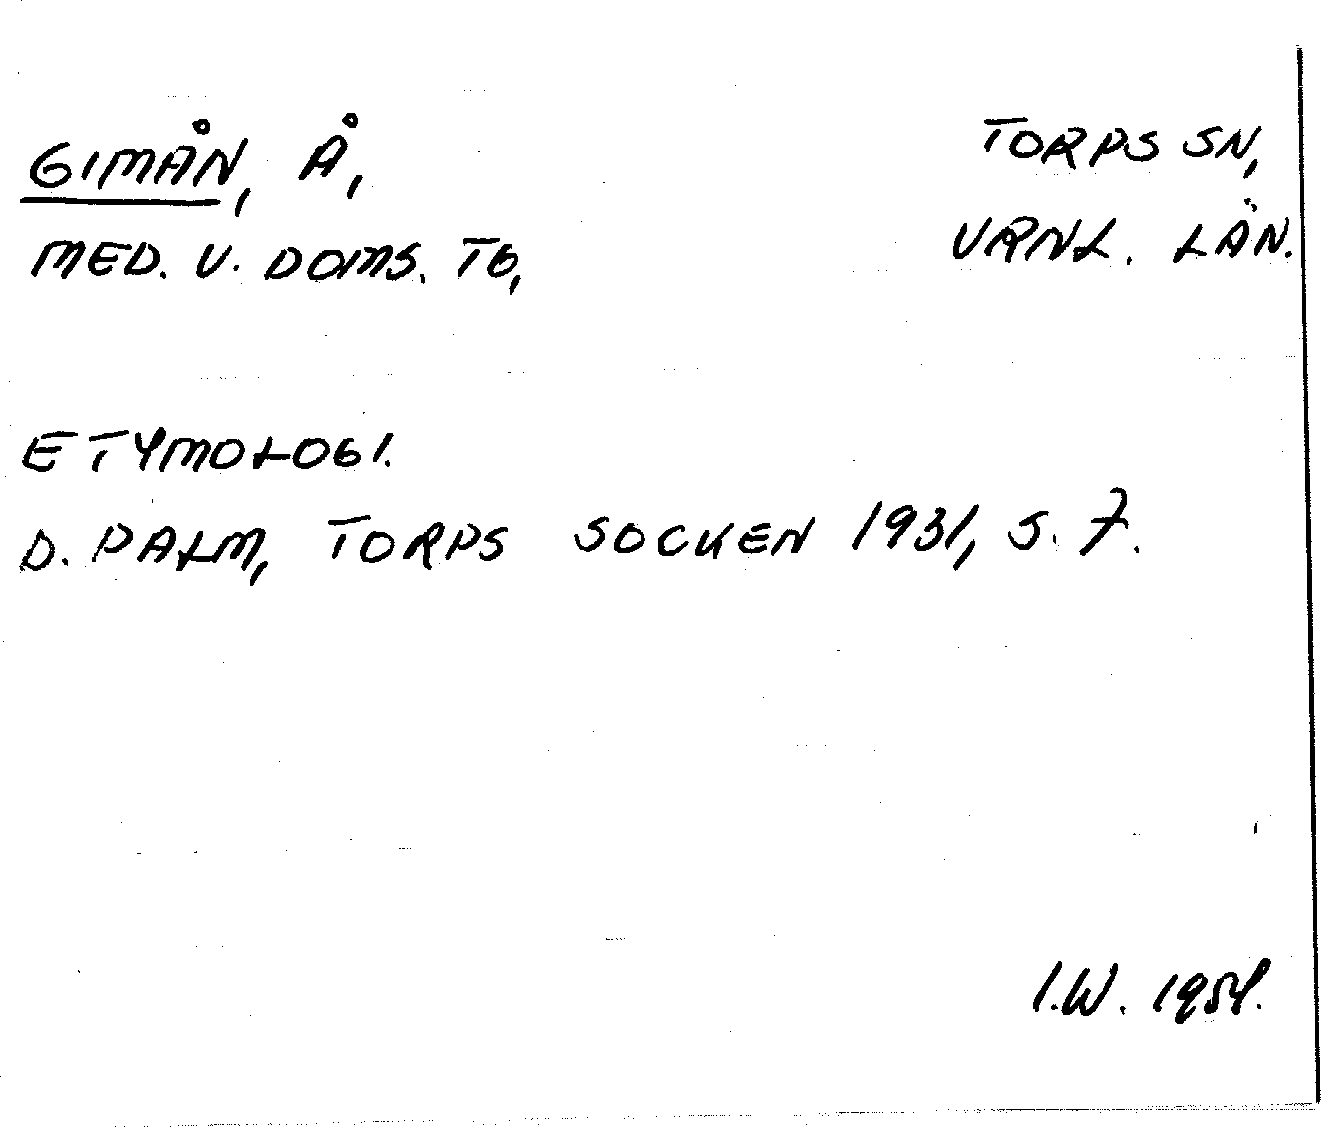 GIMÅN, Å,
TORPS SN,
MED. V. DOMS. TG,
VRNL. LÄN.
ETYMOLOGI.
D. PALM, TORPS SOCKEN 1931, S. 7.
I.W. 1954.